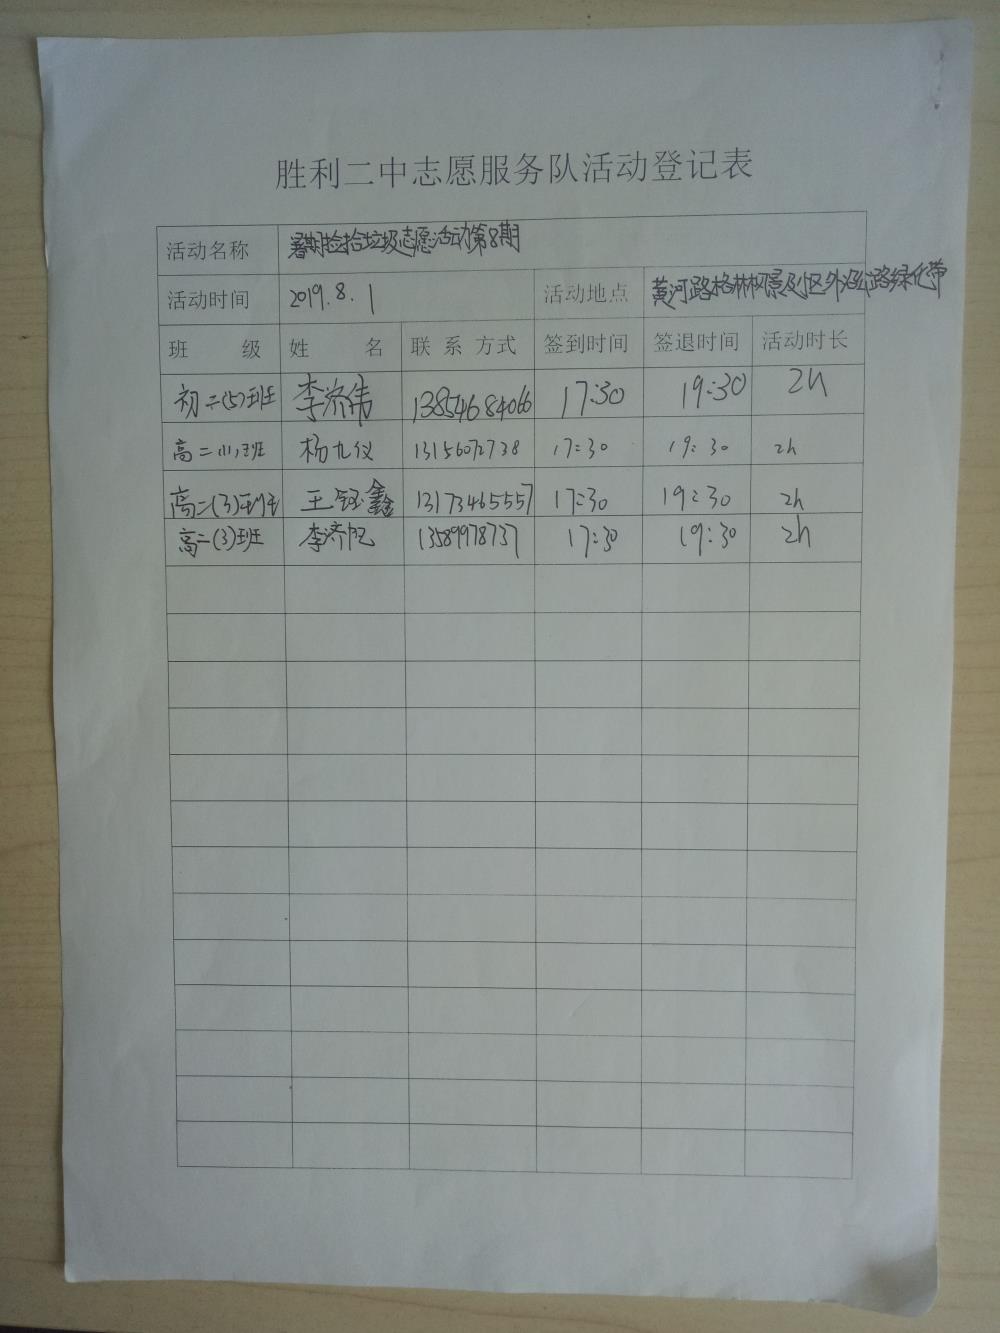 胜利二中志愿服务队活动登记表
活动名称 暑期捡拾垃圾志愿活动第8期
活动时间 2019.8.1 活动地点 黄河路格林风景小区外沿路绿化带
班 级 姓 名 联 系 方式 签到时间 签退时间 活动时长
初二(5)班 李济伟 13854684066 17:30 19:30 2h
高二(1)班 杨九仪 13156072738 17:30 19:30 2h
高二(3)班 王钰鑫 13173465557 17:30 19:30 2h
高二(3)班 李济帆 13589978737 17:30 19:30 2h